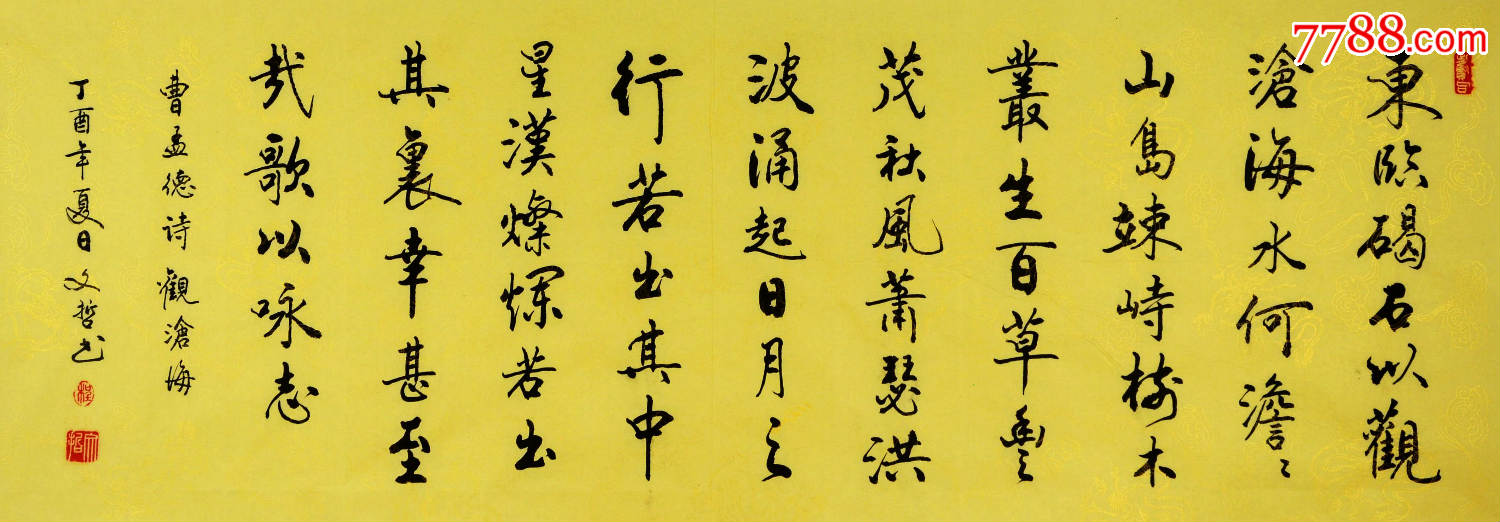 7788.com
東臨碣石以觀
滄海水何澹〻
山島竦峙樹木
叢生百草豐
茂秋風蕭瑟洪
波涌起日月之
行若出其中
星漢燦爛若出
其裏幸甚至
哉歌以咏志
曹孟德诗觀滄海
丁酉年夏日文哲书
程
文哲